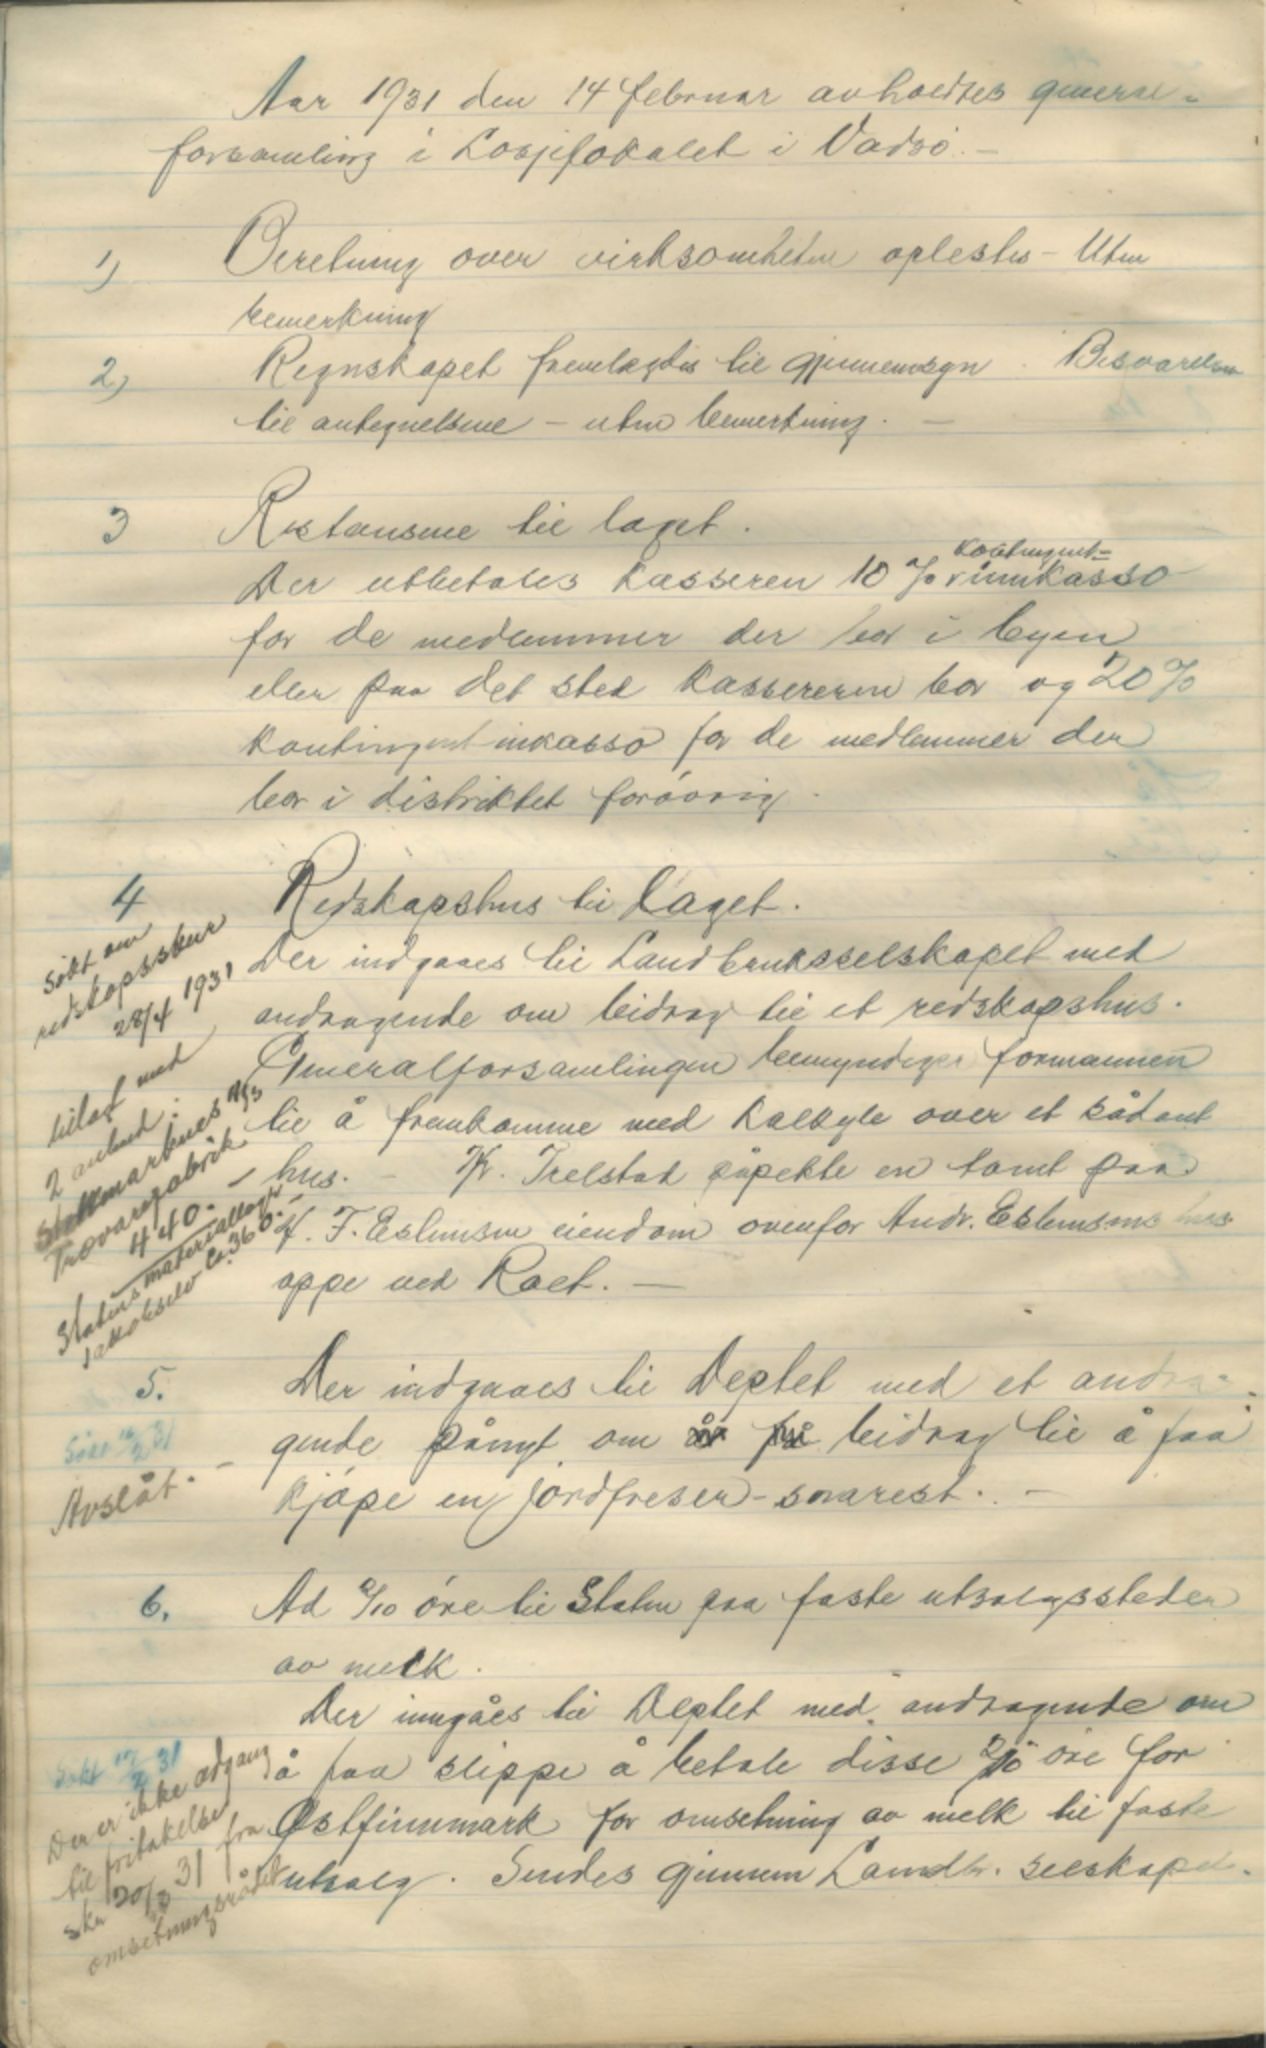 Aar 1931 den 14 februar avholdtes general-
forsamling i Losjelokalet i Vadsö. -
1) Beretning over virksomheten oplestes - Uten
bemerkning
2) Regnskapet fremlagdes til gjennemsyn. Besvarelsen
til antegnelsene - uten bemerkning. -
3 Restansene til laget.
kontingent=
Der utbetales kasseren 10 % v innkasso
for de medlemmer der bor i byen
eller paa det sted kassereren bor og 20 %
kontingent inkasso for de medlemmer der
bor i distriktet forövrig.
4 Redskapshus til laget.
Søkt om
redskapsskur
28/4 1931
Der indgaaes til Landbruksselskapet med
andragende om bidrag til et redskapshus.
Generalforsamlingen bemyndiger formannen
til å fremkomme med kalkyle over et sådant
hus. - Kr. Trelstad påpekte en tomt paa
F. Eslensen eiendom ovenfor Andr. Eslensens hus
oppe ved Raet. -
bilagt med
2 anbud:
Trevarefabrik
440. -
Statens materiallager
Jakobselv kr. 360. -
5. Der indgaaes til Deptet med et andra-
gende påny om bidrag til å faa
kjöpe en jordfreser - snarest. -
Søkt 18/2 31
Avslåt. -
6. Ad 2/10 öre til Staten paa faste utsalgssteder
av melk.
Der inngåes til Deptet med andragende om
å faa slippe å betale disse 2/10 öre for
Östfinnmark for omsetning av melk til faste
utsalg. Sendes gjennem Landbr. selskapet.
Søkt 18/2 31
Der er ikke adgang
til fritakelse
skr 20/3 31 fra
omsetningsrådet